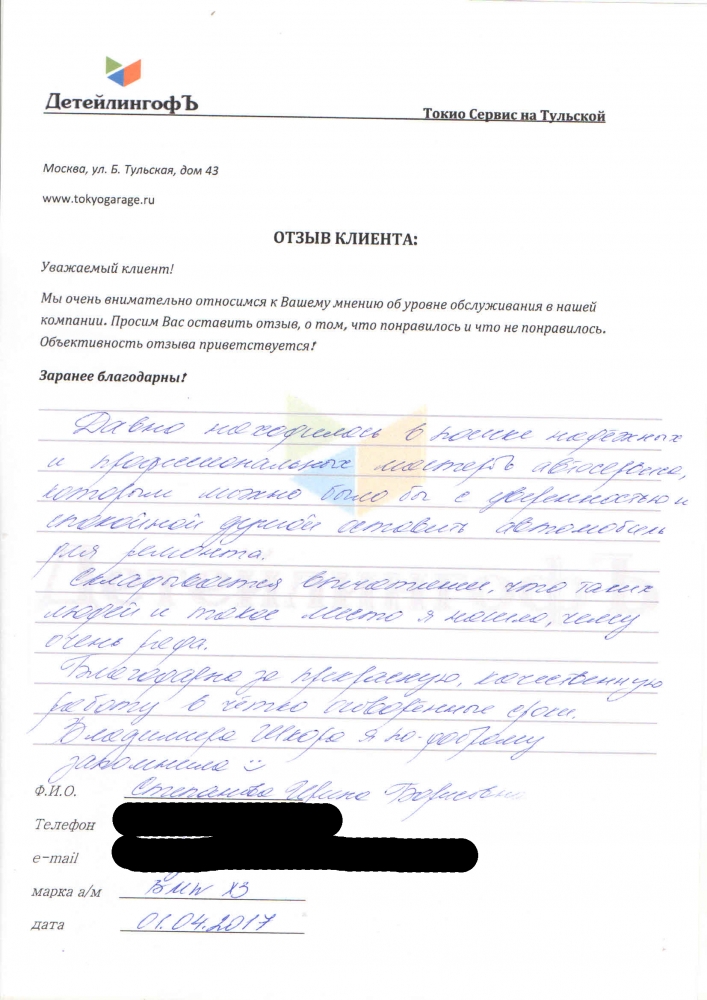 ДетейлингофЪ
Токио Сервис на Тульской
Москва, ул. Б. Тульская, дом 43
www.tokyogarage.ru
ОТЗЫВ КЛИЕНТА:
Уважаемый клиент!
Мы очень внимательно относимся к Вашему мнению об уровне обслуживания в нашей
компании. Просим Вас оставить отзыв, о том, что понравилось и что не понравилось.
Объективность отзыва приветствуется!
Заранее благодарны!
Давно находилась в поиске надежных
и профессиональных мастеров автосервиса,
которым можно было бы с уверенностью и
спокойной душой оставить автомобиль
для ремонта.
Складывается впечатление, что таких
людей и такое место я нашла, чему
очень рада.
Благодарна за прекрасную, качественную
работу в чётко оговоренные сроки.
Владимира я по-доброму
запомнила
Ф.И.О. Степанова Ирина Борисовна
Телефон
e-mail
марка а/м BMW X3
дата 01.04.2017